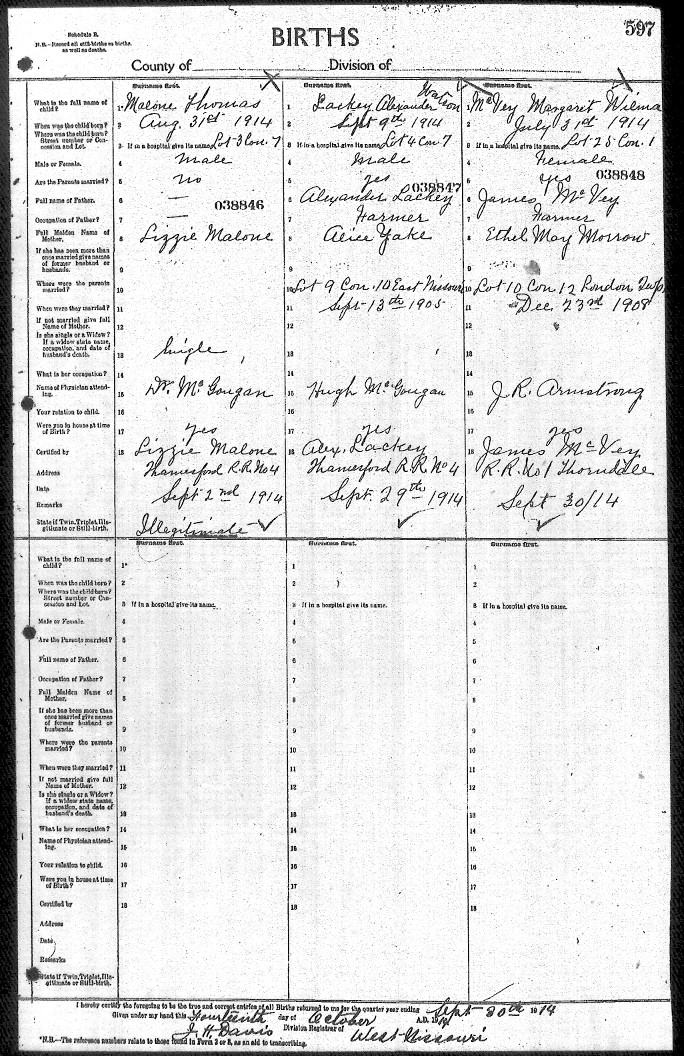 Schedule B.
N.B.—Record all still-births as births.
as well as deaths.
BIRTHS
597
County of
Division of
Surname first.
Surname first.
Surname first.
What is the full name of
child?
1 Malone Thomas
1 Lackey Alexander Watson
1 McVey Margaret Wilma
When was the child born?
2 Aug. 31st 1914
2 Sept 9th 1914
2 July 31st 1914
Where was the child born?
Street number or Con-
cession and Lot.
3 If in a hospital give its name. Lot 3 Con. 7
3 If in a hospital give its name. Lot 4 Con 7
3 If in a hospital give its name. Lot 25 Con. 1
Male or Female.
4 Male
4 Male
4 Female
Are the Parents married?
5 no
5 yes
5 yes
038846
038847
038848
Full name of Father.
6 —
6 Alexander Lackey
6 James McVey
Occupation of Father?
7 —
7 Farmer
7 Farmer
Full Maiden Name of
Mother.
8 Lizzie Malone
8 Alice Yake
8 Ethel May Morrow
If she has been more than
once married give names
of former husband or
husbands.
9
9
9
Where were the parents
married?
10
10 Lot 9 Con. 10 East Nissouri
10 Lot 10 Con 12 London Twp.
When were they married?
11
11 Sept 13th 1905
11 Dec. 23rd 1908
If not married give full
Name of Mother.
12
12
12
Is she single or a Widow?
If a widow state name,
occupation, and date of
husband's death.
13 Single
13
13
What is her occupation?
14
14
14
Name of Physician attend-
ing.
15 Dr. McGougan
15 Hugh McGougan
15 J.R. Armstrong
Your relation to child.
16
16
16
Were you in house at time
of Birth?
17 yes
17 yes
17 yes
Certified by
18 Lizzie Malone
18 Alex. Lackey
18 James McVey
Address
Thamesford R.R. No 4
Thamesford R.R. No 4
R.R. No 1 Thorndale
Date
Sept 2nd 1914
Sept. 29th 1914
Sept 30/14
Remarks
State if Twin, Triplet, Ille-
gitimate or Still-birth.
Illegitimate
Surname first.
Surname first.
Surname first.
What is the full name of
child?
1
1
1
When was the child born?
2
2
2
Where was the child born?
Street number or Con-
cession and Lot.
3 If in a hospital give its name.
3 If in a hospital give its name.
3 If in a hospital give its name.
Male or Female.
4
4
4
Are the Parents married?
5
5
5
Full name of Father.
6
6
6
Occupation of Father?
7
7
7
Full Maiden Name of
Mother.
8
8
8
If she has been more than
once married give names
of former husband or
husbands.
9
9
9
Where were the parents
married?
10
10
10
When were they married?
11
11
11
If not married give full
Name of Mother.
12
12
12
Is she single or a Widow?
If a widow state name,
occupation, and date of
husband's death.
13
13
13
What is her occupation?
14
14
14
Name of Physician attend-
ing.
15
15
15
Your relation to child.
16
16
16
Were you in house at time
of Birth?
17
17
17
Certified by
18
18
18
Address
Date
Remarks
State if Twin, Triplet, Ille-
gitimate or Still-birth.
I hereby certify the foregoing to be the true and correct entries of all Births returned to me for the quarter year ending Sept 30th 1914
Given under my hand this Fourteenth day of October A.D. 1914
J. H. Davis Division Registrar of West Nissouri
*N.B.—The reference numbers relate to those found in Form 2 or 3, as an aid to transcribing.